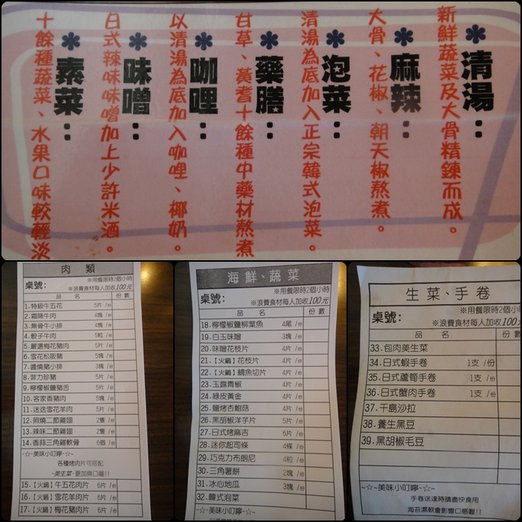 *清湯:
新鮮蔬菜及大骨精鍊而成。
*麻辣:
大骨、花椒、朝天椒熬煮。
*泡菜:
清湯為底加入正宗韓式泡菜。
*藥膳:
甘草、黃耆十餘種中藥材熬煮
*咖哩:
以清湯為底加入咖哩、椰奶。
*味噌:
日式辣味味噌加上少許米酒。
*素菜:
十餘種蔬菜、水果口味較輕淡
肉 類
桌號:
※用餐限時2個小時
※浪費食材每人加收100元
品 名 份 數
1.特級牛五花 5片 /份
2.霜降牛肉 4塊 /份
3.無骨牛小排 4塊 /份
4.骰子牛肉 5粒 /份
5.嚴選梅花豬肉 5片 /份
6.雪花松阪豬 5片 /份
7.醬燒豬小排 3塊 /份
8.菲力珍豬 5片 /份
9.檸檬椒鹽豬舌 5片 /份
10.客家香豬肉 3塊 /份
11.迷迭雪花羊肉 5片 /份
12.照燒二節雞翅 2支 /份
13.辣味二節雞翅 2支 /份
14.香蒜三角雞軟骨 6個 /份
~☆~美味小叮嚀~☆~
各種烤肉片可搭配
~美生菜~更加爽口喔!!
15.【火鍋】牛五花肉片 6片 /份
16.【火鍋】雪花羊肉片 6片 /份
17.【火鍋】梅花豬肉片 6片 /份
海 鮮、蔬 菜
桌號:
※用餐限時2個小時
※浪費食材每人加收100元
品 名 份數
18.檸檬椒鹽柳葉魚 4尾 /份
19.白玉味噌 3塊 /份
20.味噌花枝片 4片 /份
21.【火鍋】花枝片 4片 /份
22.【火鍋】鯛魚切片 4片 /份
23.玉露青椒 4片 /份
24.綠皮黃金 4片 /份
25.鹽烤杏鮑菇 4片 /份
26.黑胡椒洋芋片 5片 /份
27.日式烤麻吉 6片 /份
28.迷你起司條 4條 /份
29.巧克力布朗尼 4粒 /份
30.三角薯餅 2塊 /份
31.冰心地瓜 3塊 /份
32.韓式泡菜 /份
生 菜、手 卷
桌號:
※用餐限時2個小時
※浪費食材每人加收100元
品 名 份數
33.包肉美生菜 /份
34.日式蝦手卷 1支 /份
35.日式蘆筍手卷 1支 /份
36.日式蟹肉手卷 1支 /份
37.千島沙拉
38.養生黑豆
39.黑胡椒毛豆
~☆~美味小叮嚀~☆~
手卷送達時請盡快食用
海苔濕軟會影響口感喔!!